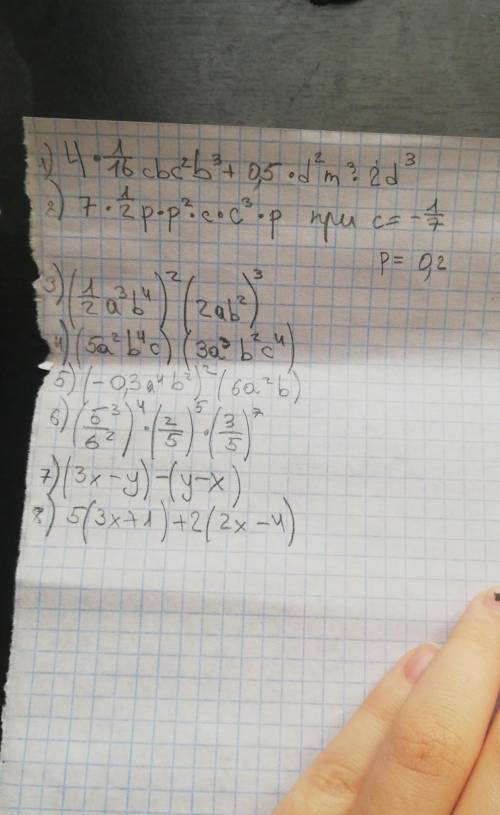 1) 4 · 1/16 cbc²b³ + 0,5 · d²m³ · 2d³
2) 7 · 1/2 p · p² · c · c³ · p при c = -1/7
p = 0,2
3) (1/2 a³b⁴)² (2ab²)³
4) (5a²b⁴c) (3a³b²c⁴)
5) (-0,3a⁴b²)² (6a²b)
6) (5³/6²)⁴ · (2/5)⁵ · (3/5)⁷
7) (3x-y) - (y-x)
8) 5(3x+1) + 2(2x-4)